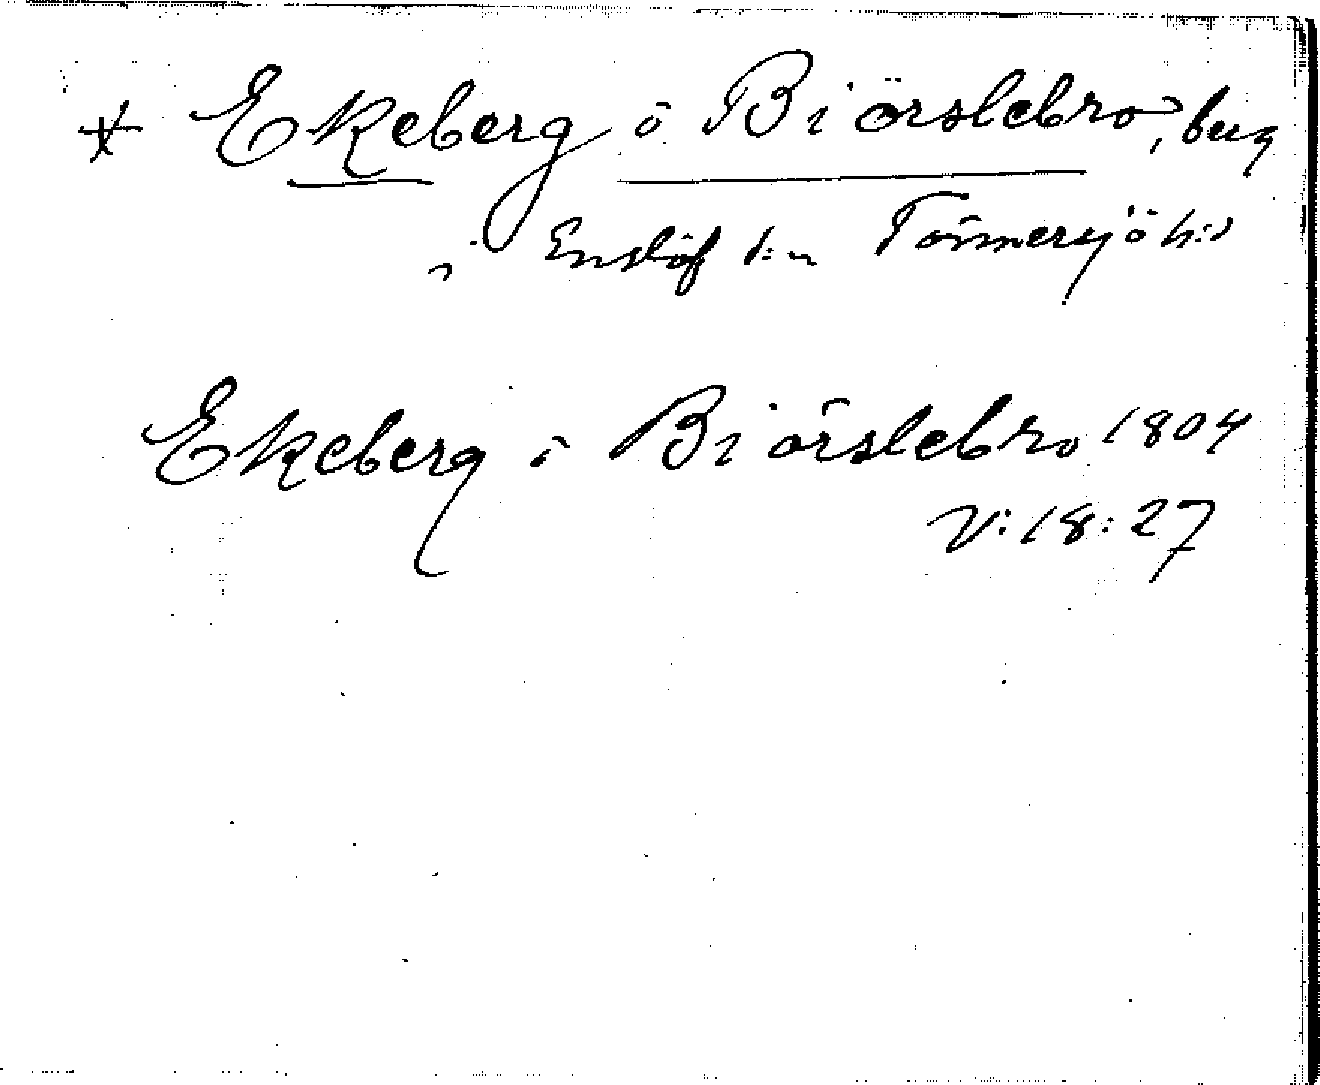 * Ekeberg ö Biörslebro, berg
i Enslöf s:n Tönnersjö h:d
Ekeberg ö Biörslebro 1804
V:18:27